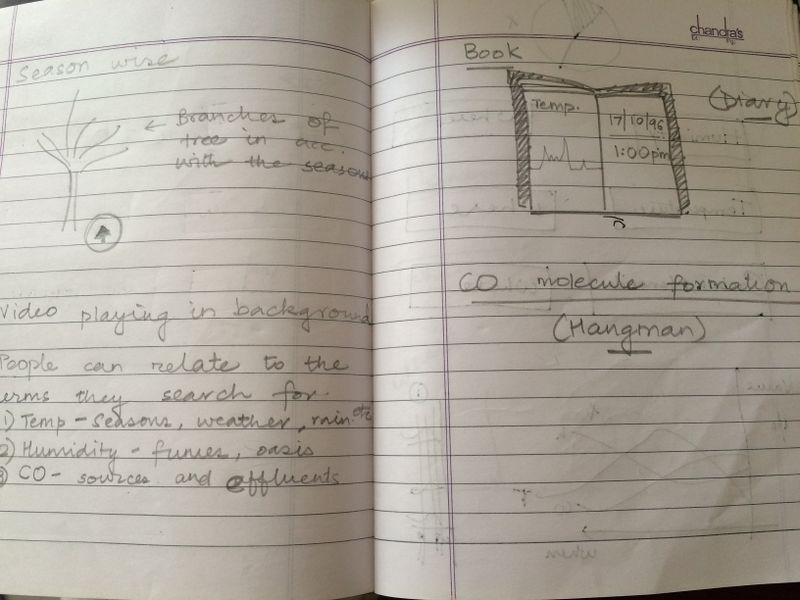 Season wise
← Branches of
tree in acc.
with the seasons
Video playing in background
People can relate to the
erms they search for.
1) Temp - Seasons, weather, rain etc
2) Humidity - fumes, oasis
3) CO - sources and effluents
chandra's
Book
(Diary)
Temp.
17/10/96
1:00pm
CO molecule formation
(Hangman)